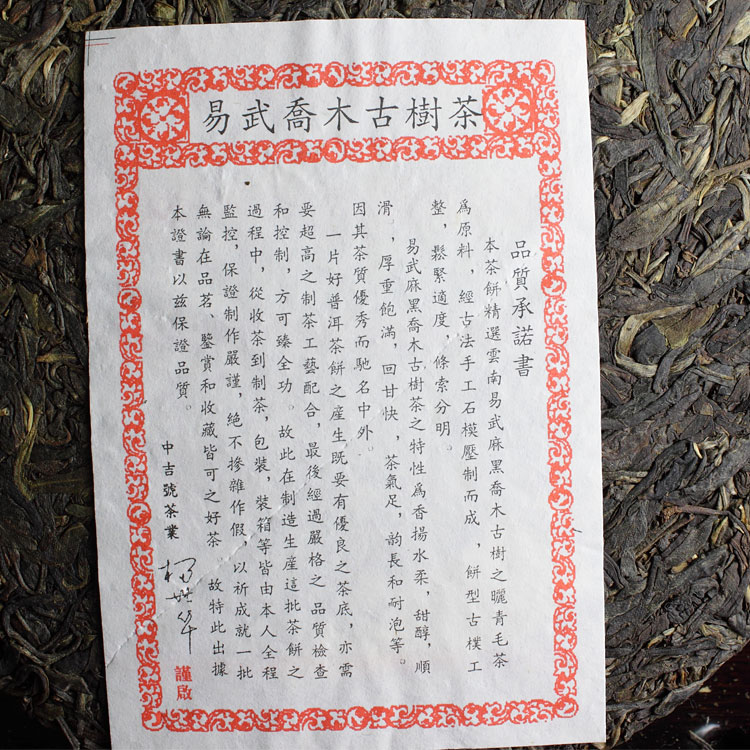 易武喬木古樹茶
品質承諾書
本茶餅精選雲南易武麻黑喬木古樹之曬青毛茶
為原料，經古法手工石模壓制而成，餅型古樸工
整，鬆緊適度，條索分明。
易武麻黑喬木古樹茶之特性為香揚水柔，甜醇，順
滑，厚重飽滿，回甘快，茶氣足，韵長和耐泡等。
因其茶質優秀而馳名中外。
一片好普洱茶餅之産生既要有優良之茶底，亦需
要超高之制茶工藝配合，最後經過嚴格之品質檢查
和控制，方可臻全功。故此在制造生産這批茶餅之
過程中，從收茶到制茶，包裝，裝箱等皆由本人全程
監控，保證制作嚴謹，絕不摻雜作假，以祈成就一批
無論在品茗、鑒賞和收藏皆可之好茶 故特此出據
本證書以兹保證品質。
中吉號茶業
楊世華
謹啟